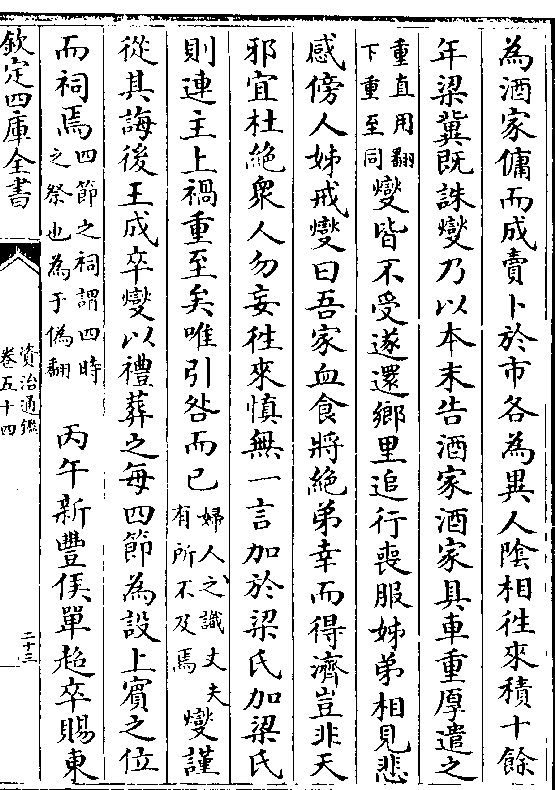 為酒家傭而成賣卜於市各為異人隂相徃來積十餘
年梁冀既誅燮乃以本末告酒家酒家具車重厚遣之
重直用翻
下重至同
燮皆不受遂還鄉里追行喪服姊弟相見悲
感傍人姊戒燮曰吾家血食將絶弟幸而得濟豈非天
邪宜杜絶衆人勿妄徃來慎無一言加於梁氏加梁氏
則連主上禍重至矣唯引咎而已
婦人之識丈夫
有所不及焉
燮謹
從其誨後王成卒燮以禮葬之每四節為設上賓之位
而祠焉
四節之祠謂四時
之祭也為于偽翻
丙午新豐侯單超卒賜東
欽定四庫全書
資治通鑑
卷五十四
二十三